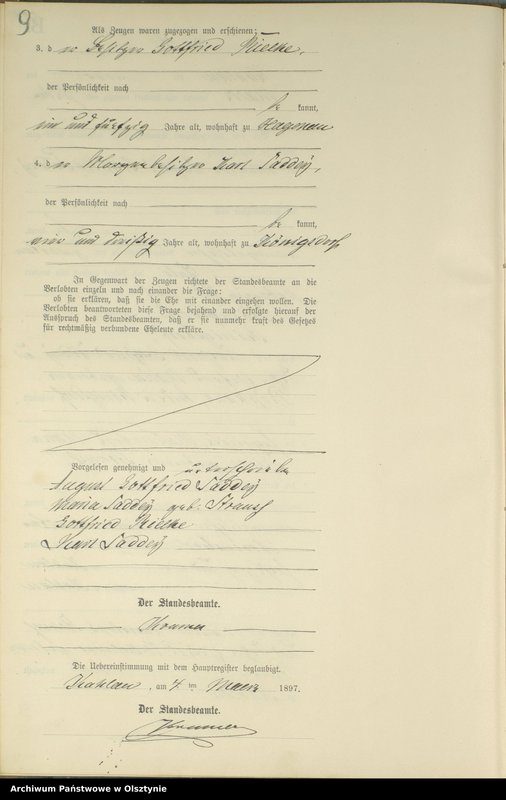 9
Als Zeugen waren zugezogen und erschienen:
3. der Besitzer Gottfried Mielke,
der Persönlichkeit nach
be kannt,
und fünfzig Jahre alt, wohnhaft zu Hagenau
4. der Morgenbesitzer Karl Taddey,
der Persönlichkeit nach
be kannt,
vier und dreißig Jahre alt, wohnhaft zu Königsdorf
In Gegenwart der Zeugen richtete der Standesbeamte an die
Verlobten einzeln und nach einander die Frage:
ob sie erklären, daß sie die Ehe mit einander eingehen wollen. Die
Verlobten beantworteten diese Frage bejahend und erfolgte hierauf der
Ausspruch des Standesbeamten, daß er sie nunmehr kraft des Gesetzes
für rechtmäßig verbundene Eheleute erkläre.
Vorgelesen genehmigt und unterschrieben
August Gottfried Taddey
Maria Taddey geb. Strauß
Gottfried Mielke
Karl Taddey
Der Standesbeamte.
Die Uebereinstimmung mit dem Hauptregister beglaubigt.
Kahlau, am 4 ten Maerz 1897.
Der Standesbeamte.
Archiwum Państwowe w Olsztynie